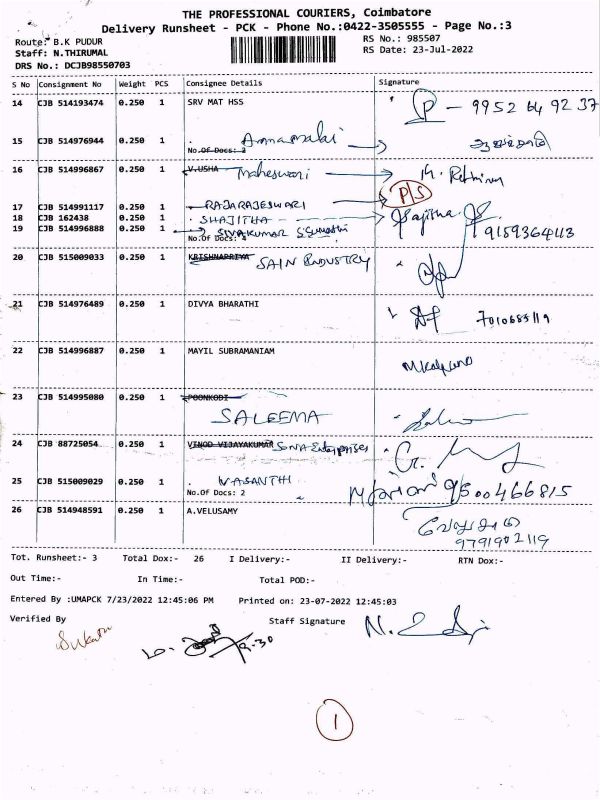 THE PROFESSIONAL COURIERS, Coimbatore
Delivery Runsheet - PCK - Phone No.:0422-3505555 - Page No.:3
Route: B.K PUDUR RS No.: 985507
Staff: N.THIRUMAL RS Date: 23-Jul-2022
DRS No.: DCJB98550703
S No Consignment No Weight PCS Consignee Details Signature
14 CJB 514193474 0.250 1 SRV MAT HSS P - 9952 64 92 37
15 CJB 514976944 0.250 1 Annamalai
No.Of Docs: 2
16 CJB 514996867 0.250 1 V.USHA Maheswari
P/S
17 CJB 514991117 0.250 1 RAJARAJESWARI
18 CJB 162438 0.250 1 SHAJITHA
19 CJB 514996888 0.250 1 SIVAKUMAR 9159364113
No.Of Docs: 4
20 CJB 515009033 0.250 1 KRISHNAPRIYA SAIN INDUSTRY
21 CJB 514976489 0.250 1 DIVYA BHARATHI
22 CJB 514996887 0.250 1 MAYIL SUBRAMANIAM
23 CJB 514995080 0.250 1 POONKODI
SALEEMA
24 CJB 88725054 0.250 1 VINOD VIJAYAKUMAR SONA Enterprises
25 CJB 515009029 0.250 1 VASANTHI 9500466815
No.Of Docs: 2
26 CJB 514948591 0.250 1 A.VELUSAMY
9791902119
Tot. Runsheet:- 3 Total Dox:- 26 I Delivery:- II Delivery:- RTN Dox:-
Out Time:- In Time:- Total POD:-
Entered By :UMAPCK 7/23/2022 12:45:06 PM Printed on: 23-07-2022 12:45:03
Verified By Staff Signature
9.30
1